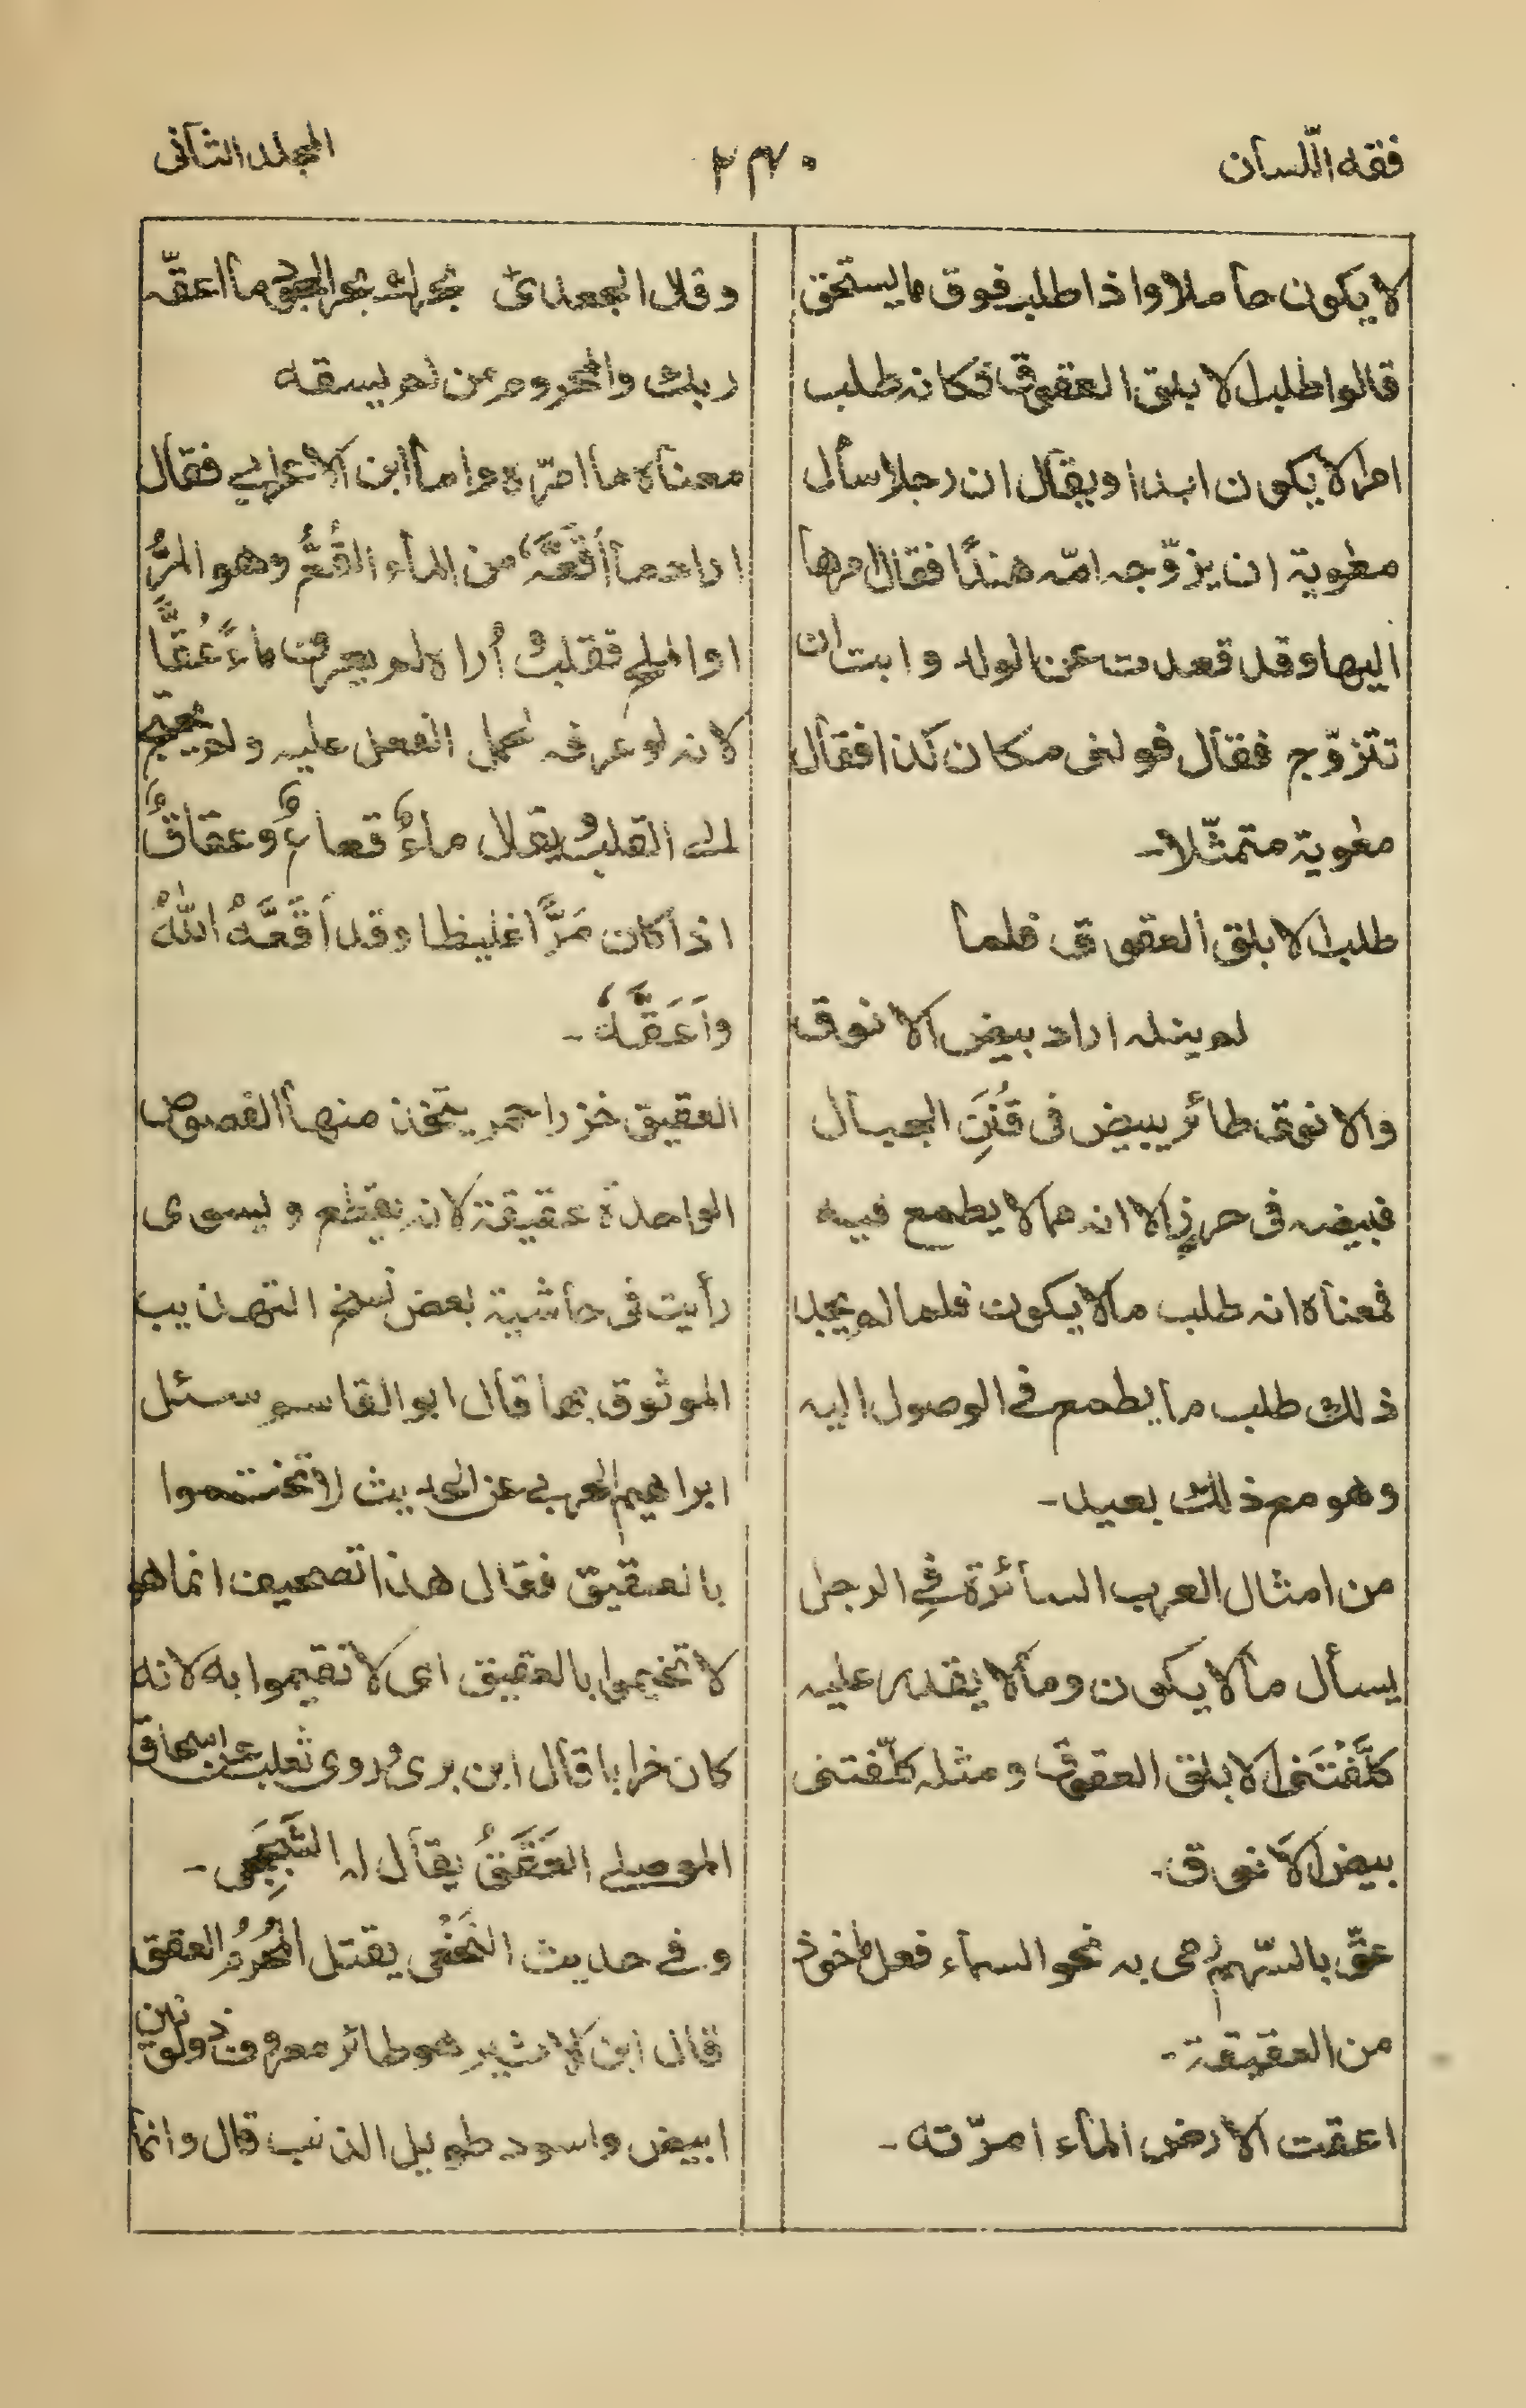 فقه اللّسان
٢٣٤٠
المجلد الثانی
لا يكون حاملا واذا طلب فوق ما يستحق
قالوا طلب الابلق العقوق فكانه طلب
امرا لا يكون ابدا ويقال ان رجلا سأل
معٰوية ان يزوّجه امّه هندًا فقال امرها
اليها وقد قعدت عن الولد وابت ان
تتزوّج فقال فولنی مكان كذا فقال
معٰوية متمثّلا۔
طلب الابلق العقوق فلما
لم ينله اراد بيض الانوق
والانوق طائر يبيض فی قُنَنِ الجبال
فبيضه فی حرزٍ الا انه مما لا يطمع فيه
فمعناه انه طلب ما لا يكون فلما لم يجد
ذلك طلب ما يطمع فے الوصول اليه
وهو مع ذلك بعيد۔
من امثال العرب السائرة فے الرجل
يسأل ما لا يكون وما لا يقدر عليه
كلَّفْتَنی الابلق العقوق ومثله كلّفتنی
بيض الانوق۔
عقّ بالسّهم رمی به نحو السماء فعل ماخوذ
من العقيقة۔
اعقت الارض الماء امرّته۔
وقال الجعدیّ بحرك بحر الجود ما اعقّه
ربك والمحروم من لم يسقه
معناه ما امرّه واما ابن الاعرابی فقال
اراد ما أقَعَّهُ من الماء القُعّ وهو المُرُّ
او الملح فقلب وأراه لم يعرف ماءً عُقًّا
لانه لو عرفه لحمل الفعل عليه ولم يحتج
الے القلب ويقال ماءٌ قعاعٌ وعقاقٌ
اذا كان مرًّا غليظا وقد أقَعَّهُ اللّٰهُ
وأعَقَّهُ۔
العقيق خرز احمر يتخذ منها الفصوص
الواحدة عقيقة لانه يقطع ويسوی
رأيت فی حاشية بعض نسخ التهذيب
الموثوق بها قال ابو القاسم سئل
ابراهيم الحربی عن الحديث لا تختموا
بالعقيق فقال هذا تصحيف انما هو
لا تخيموا بالعقيق ای لا تقيموا به لانه
كان خرابا قال ابن بری وروی ثعلب عن اسحاق
الموصلے العَقْعَقُ يقال له الشَّجَجی۔
وفے حديث النَّخَعی يقتل المُحْرِمُ العقعق
قال ابن الاثير هو طائر معروف ذو لونين
ابيض واسود طويل الذنب قال وانما